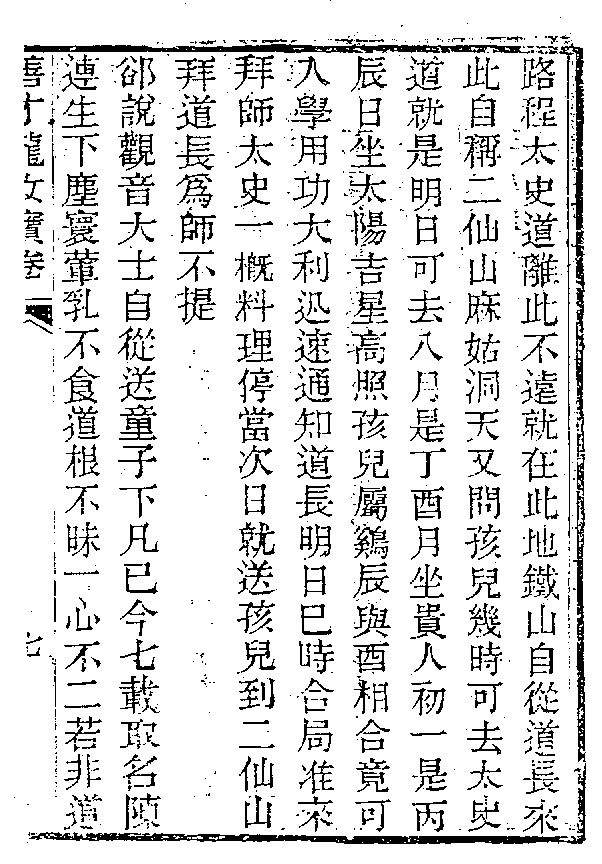 路程太史道離此不遠就在此地鐵山自從道長來
此自稱二仙山麻姑洞天又問孩兒幾時可去太史
道就是明日可去八月是丁酉月坐貴人初一是丙
辰日坐太陽吉星高照孩兒屬鷄辰與酉相合竟可
入學用功大利迅速通知道長明日巳時合局准來
拜師太史一概料理停當次日就送孩兒到二仙山
拜道長爲師不提
卻說觀音大士自從送童子下凡已今七載取名陳
連生下塵寰葷乳不食道根不昧一心不二若非道
善才龍女寶卷 七